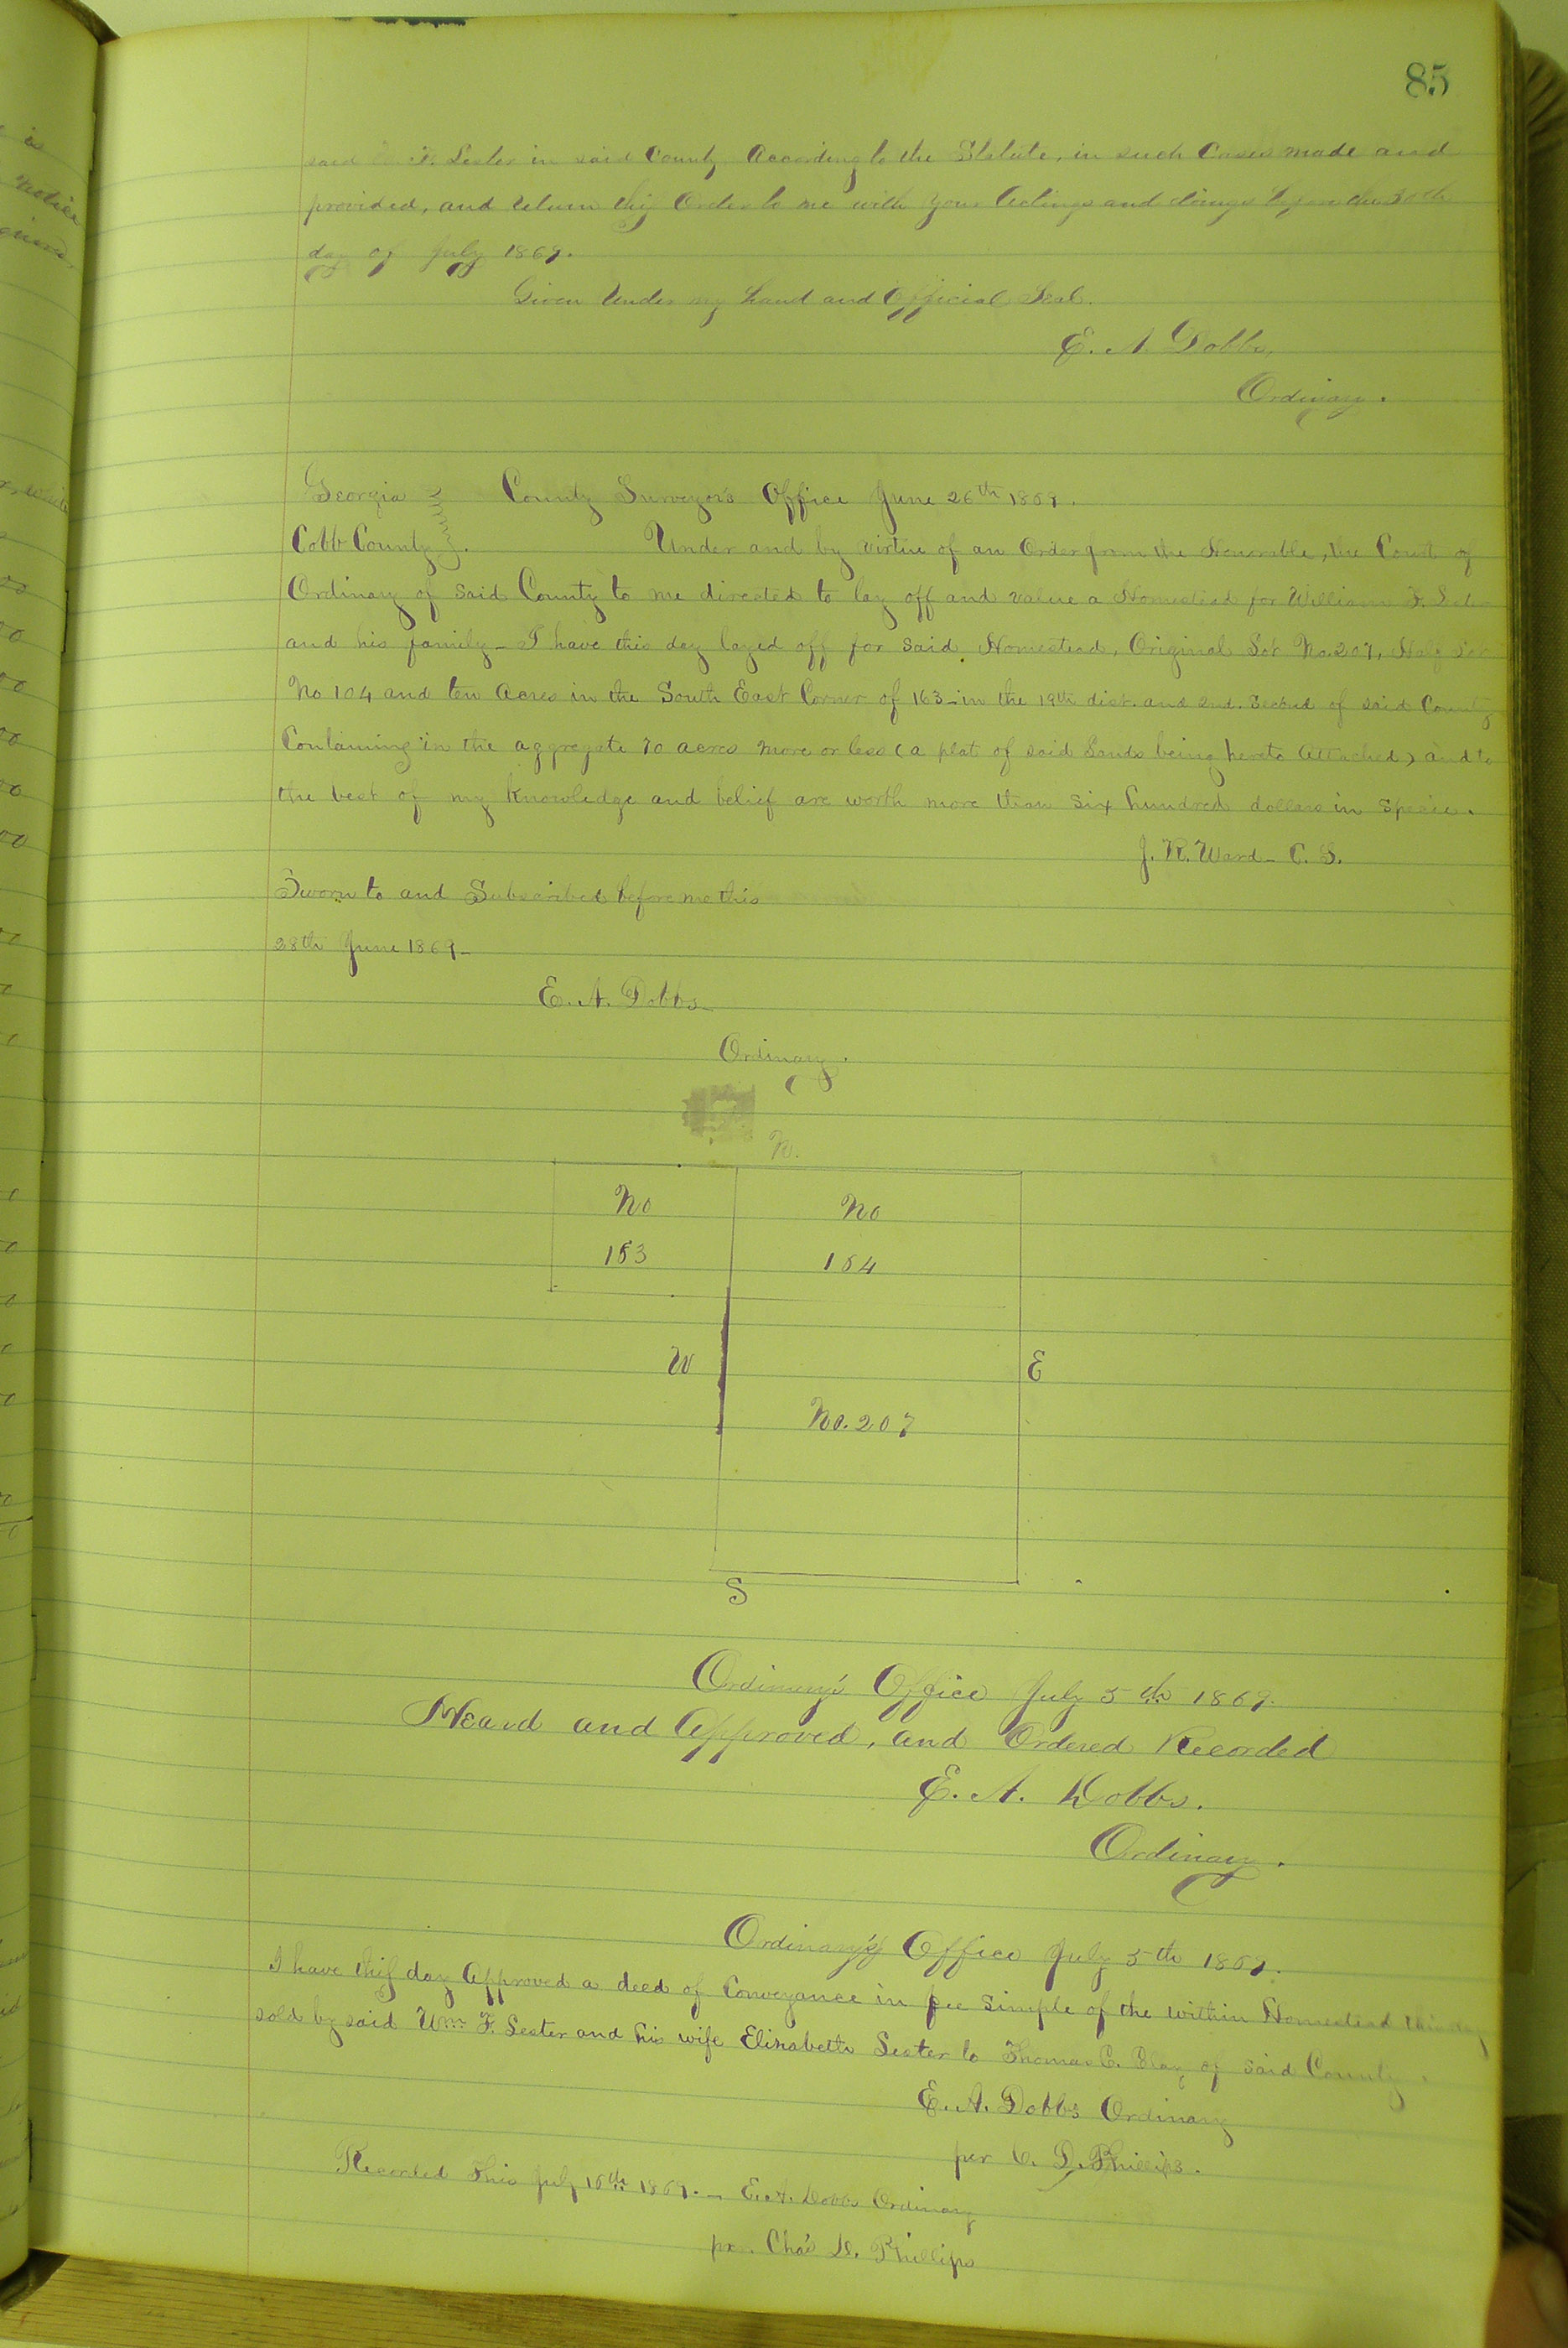 85
said Wm F. Lester in said County According to the Statute, in such Cases made and
provided, and return this Order to me with your Actings and doings before the 30th
day of July 1869.
Given Under my hand and Official Seal.
E. A. Dobbs,
Ordinary.
Georgia County Surveyor's Office June 26th 1869.
Cobb County. Under and by virtue of an Order from the Honorable, the Court of
Ordinary of said County to me directed to lay off and value a Homestead for William F. Lester
and his family - I have this day layed off for said Homestead, Original Lot No. 207, Half Lot
No 104 and ten Acres in the South East Corner of 163 - in the 19th dist. and 2nd. Section of said County
Containing in the aggregate 70 acres more or less (a plat of said Lands being hereto Attached) and to
the best of my Knowledge and belief are worth more than Six hundred dollars in specie.
J. R. Ward - C. S.
Sworn to and Subscribed before me this
28th June 1869 -
E. A. Dobbs
Ordinary.
N.
No No
153 154
W E
No. 207
S
Ordinary's Office July 5th 1869.
Heard and Approved, and Ordered Recorded
E. A. Dobbs.
Ordinary.
Ordinary's Office July 5th 1869.
I have this day Approved a deed of Conveyance in fee simple of the within Homestead this day
sold by said Wm F. Lester and his wife Elizabeth Lester to Thomas C. of said County.
E. A. Dobbs Ordinary
per C. D. Phillips.
Recorded This July 15th 1869. - E. A. Dobbs Ordinary
per. Cha's D. Phillips